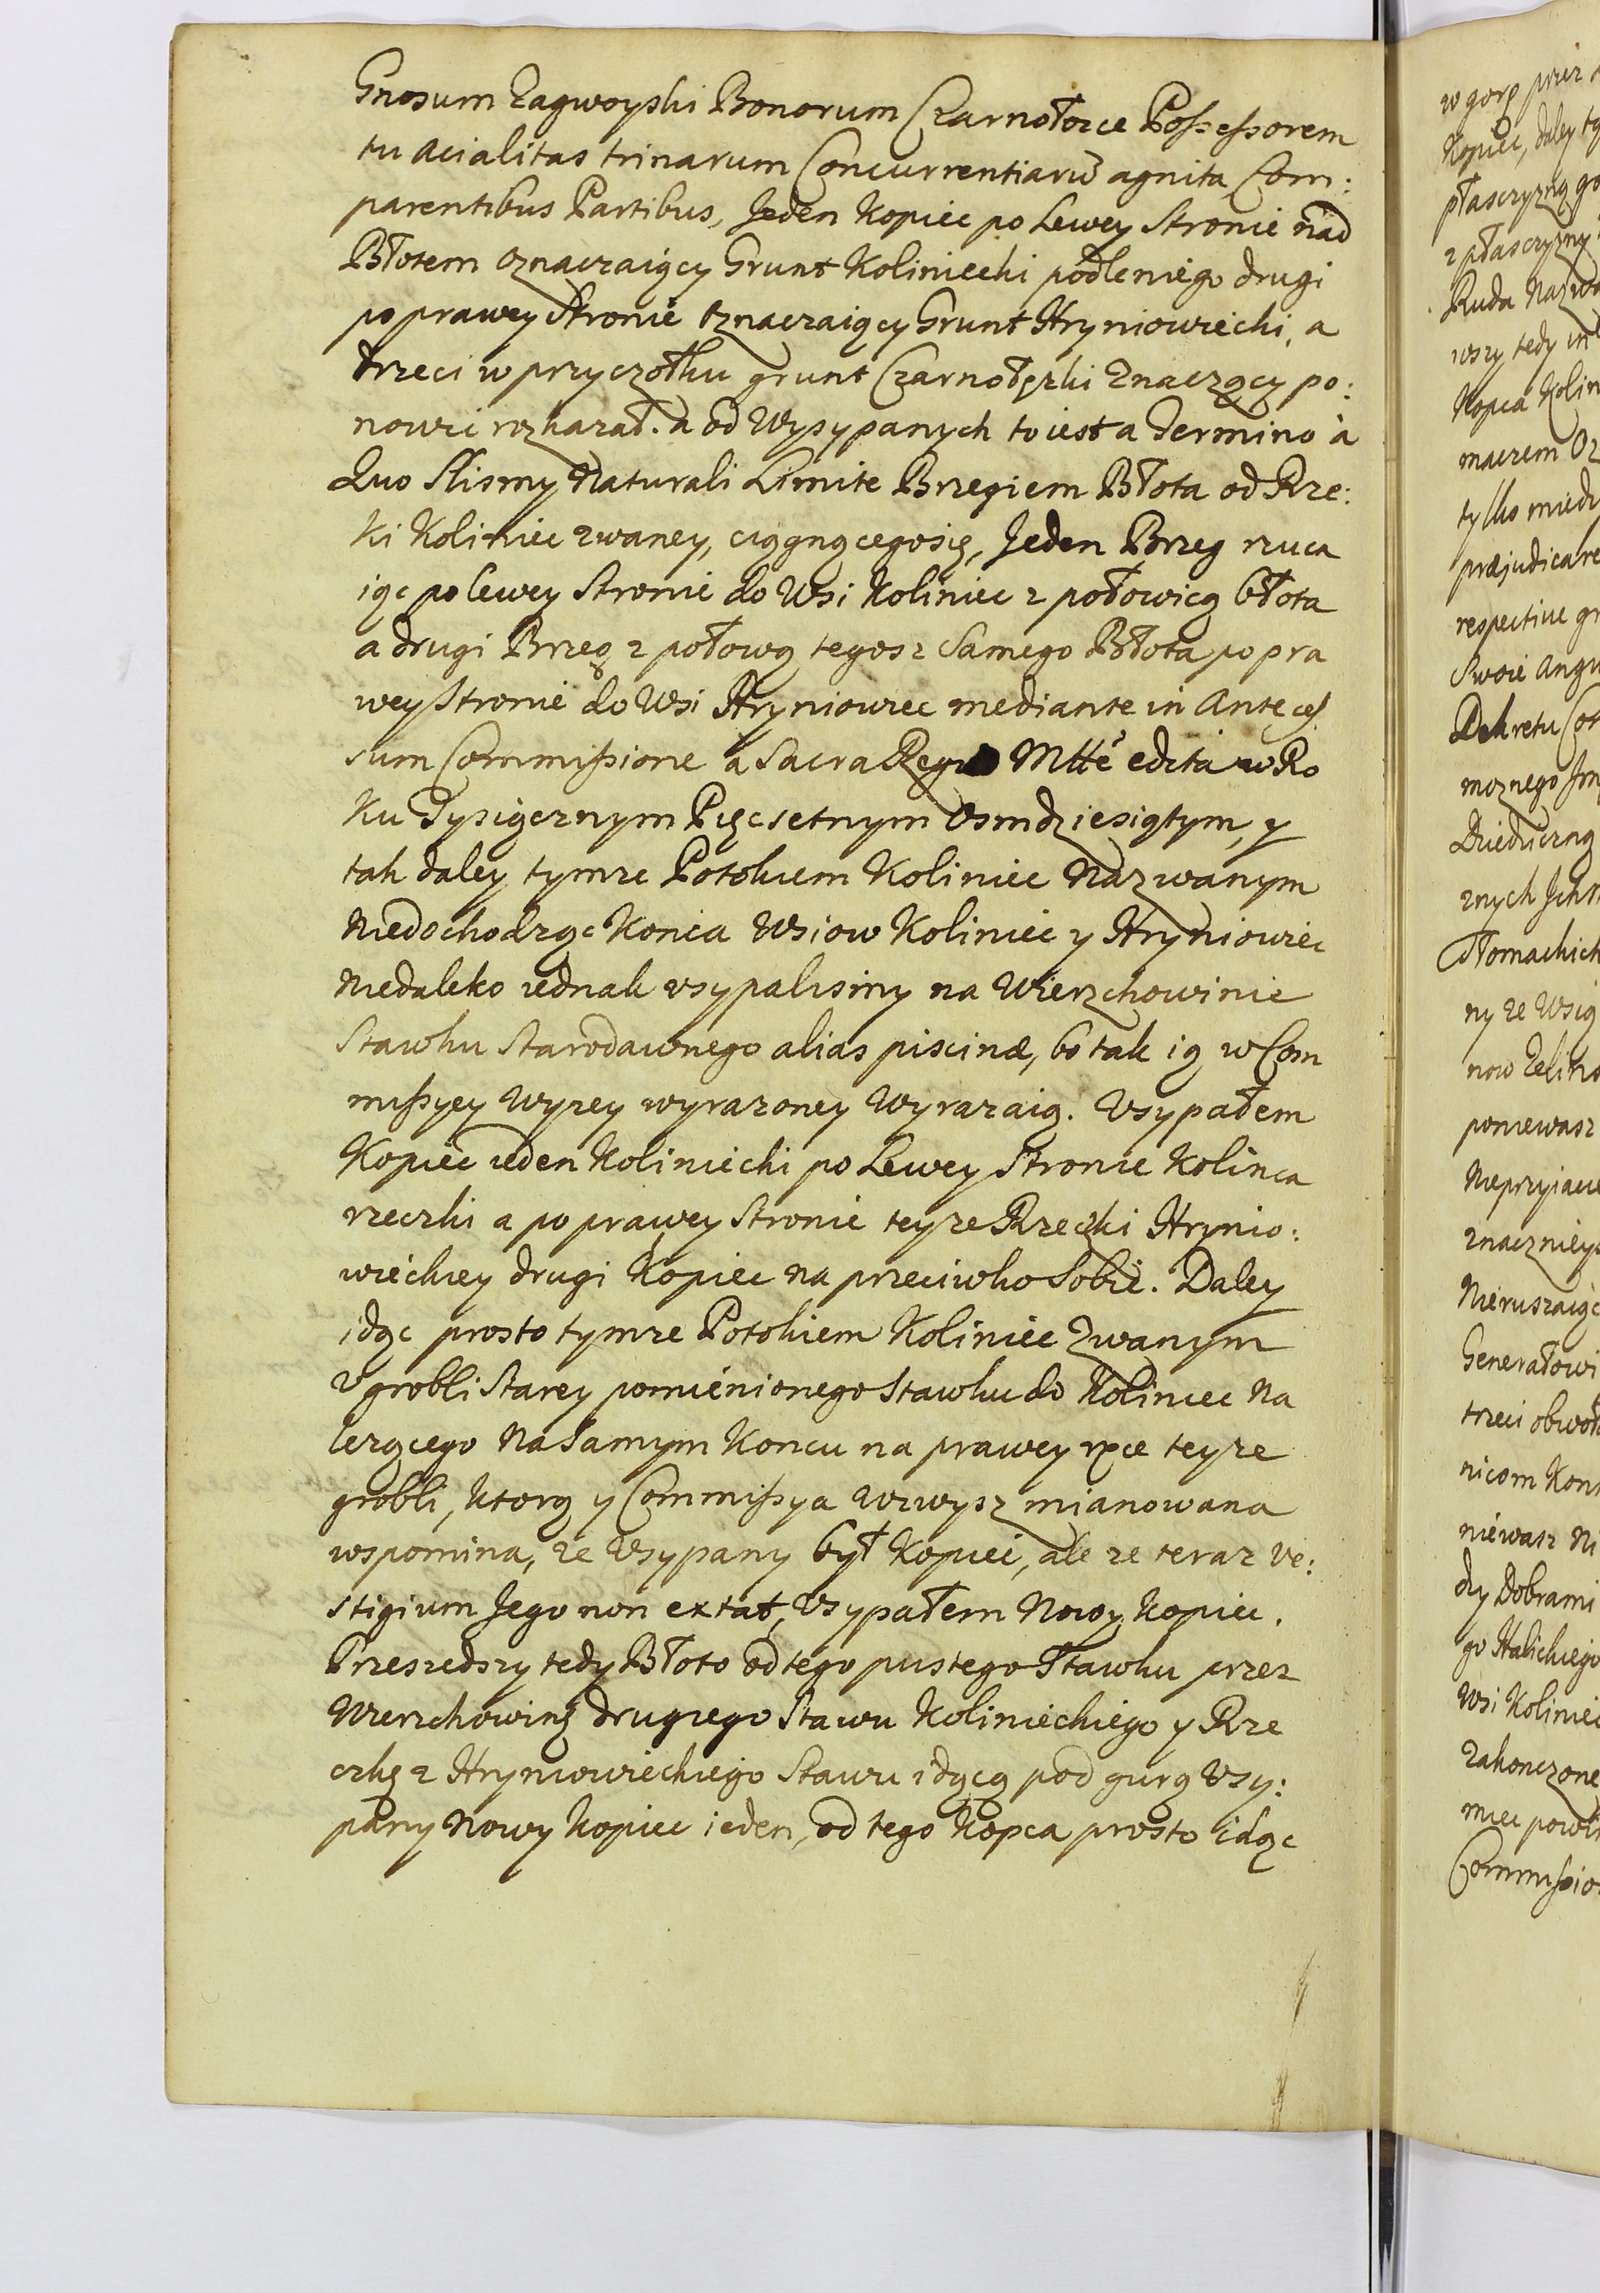 Gnosum Zagwoyski Bonorum Czarnołozce Possessorem
tu acialitas trinarum Concurrentiarū agnita Com:
parentibus Partibus, Jeden Kopiec po Lewey Stronie nad
Błotem oznaczaiący Grunt Koliniecki podleniego drugi
po prawey Stronie Oznaczaiący Grunt Hryniowiecki, a
trzeci w przyczołku grunt Czarnołęzki Znaczący po:
nowic rozkazał. a od Wysypanych to iest a Termino à
Quo Slismy Naturali Limite Brzegiem Błota od Rze:
ki Koliniec zwaney, ciągnącegosię, Jeden Brzeg rzuca
iąc po lewey Stronie do Wsi Koliniec z połowicą błota
a drugi Brzeg z połową tegosz Samego Błota po pra
wey Stronie do Wsi Hryniowiec mediante in Anteces
sum Commissione a Sacra Regia Mtte edita w Ro
ku Tysiącznym Pięcsetnym Osmdziesiątym, y
tak daley tymze Potokiem Koliniec Nazwanym
Niedochodząc Konca Wsiow Koliniec y Hryniowiec
Niedaleko iednak vsypalismy na Wierzchowinie
Stawku Starodawnego alias piscinæ, bo tak ią w Com
missyey Wyzey wyrazoney Wyrazaią. Vsypałem
Kopiec ieden Koliniecki po Lewey Stronie Kolinca
rzeczki a po prawey Stronie teyze Rzeczki Hrynio:
wieckiey drugi Kopiec na przeciwko Sobie. Daley
idąc prosto tymze Potokiem Koliniec Zwanym
V grobli Starey pomienionego Stawku do Koliniec Na
lezącego Na Samym Koncu na prawey ręce teyze
grobli, Ktorą y Commissya Wzwysz mianowana
wspomina, ze Vsypany był Kopiec, ale ze teraz ve:
stigium Jego non extat, Vsypałem Nowy Kopiec.
Przeszedszy tedy Błoto od tego pustego Stawku przez
Wierzchowinę drugiego Stawu Kolinieckiego y Rze
czkę z Hryniowieckiego Stawu idącą pod gurą Vsy:
pany Nowy Kopiec ieden, od tego Kopca prosto idąc
w gorę przez
Kopiec, daley
płasczyzną
z płasczyzny
Ruda
wszy tedy
Kopca
maczem
tylko
præjudicare
respective
Swoie
Dekretu
moznego
Dziedziczną
znych
Tłomackich
ny ze Wsią
now
poniewasz
Nieprzyiacie
znaczniey
Nieruszaiąc
Generałowi
trzeci
nicom
niewasz
dy Dobrami
go Halickiego
Wsi Koliniec
Zakonczone
miec
Commissio